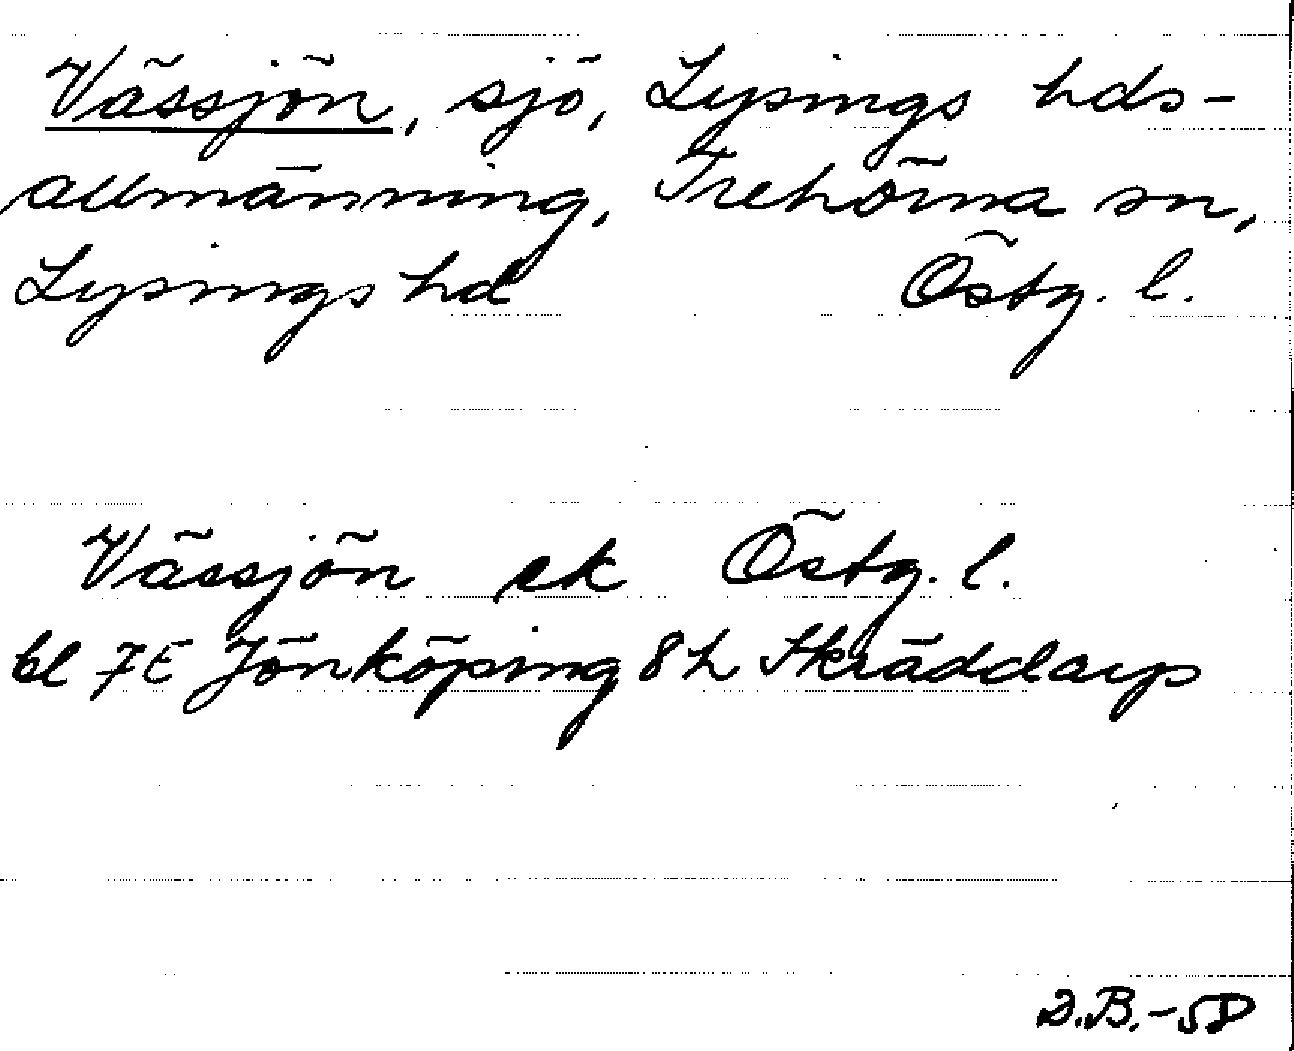 Vässjön, sjö, Lysings hds-
allmänning, Trehörna sn,
Lysings hd Östg. l.
Vässjön ek Östg. l.
bl 7E Jönköping 8h Skräddarp
D.B.-58